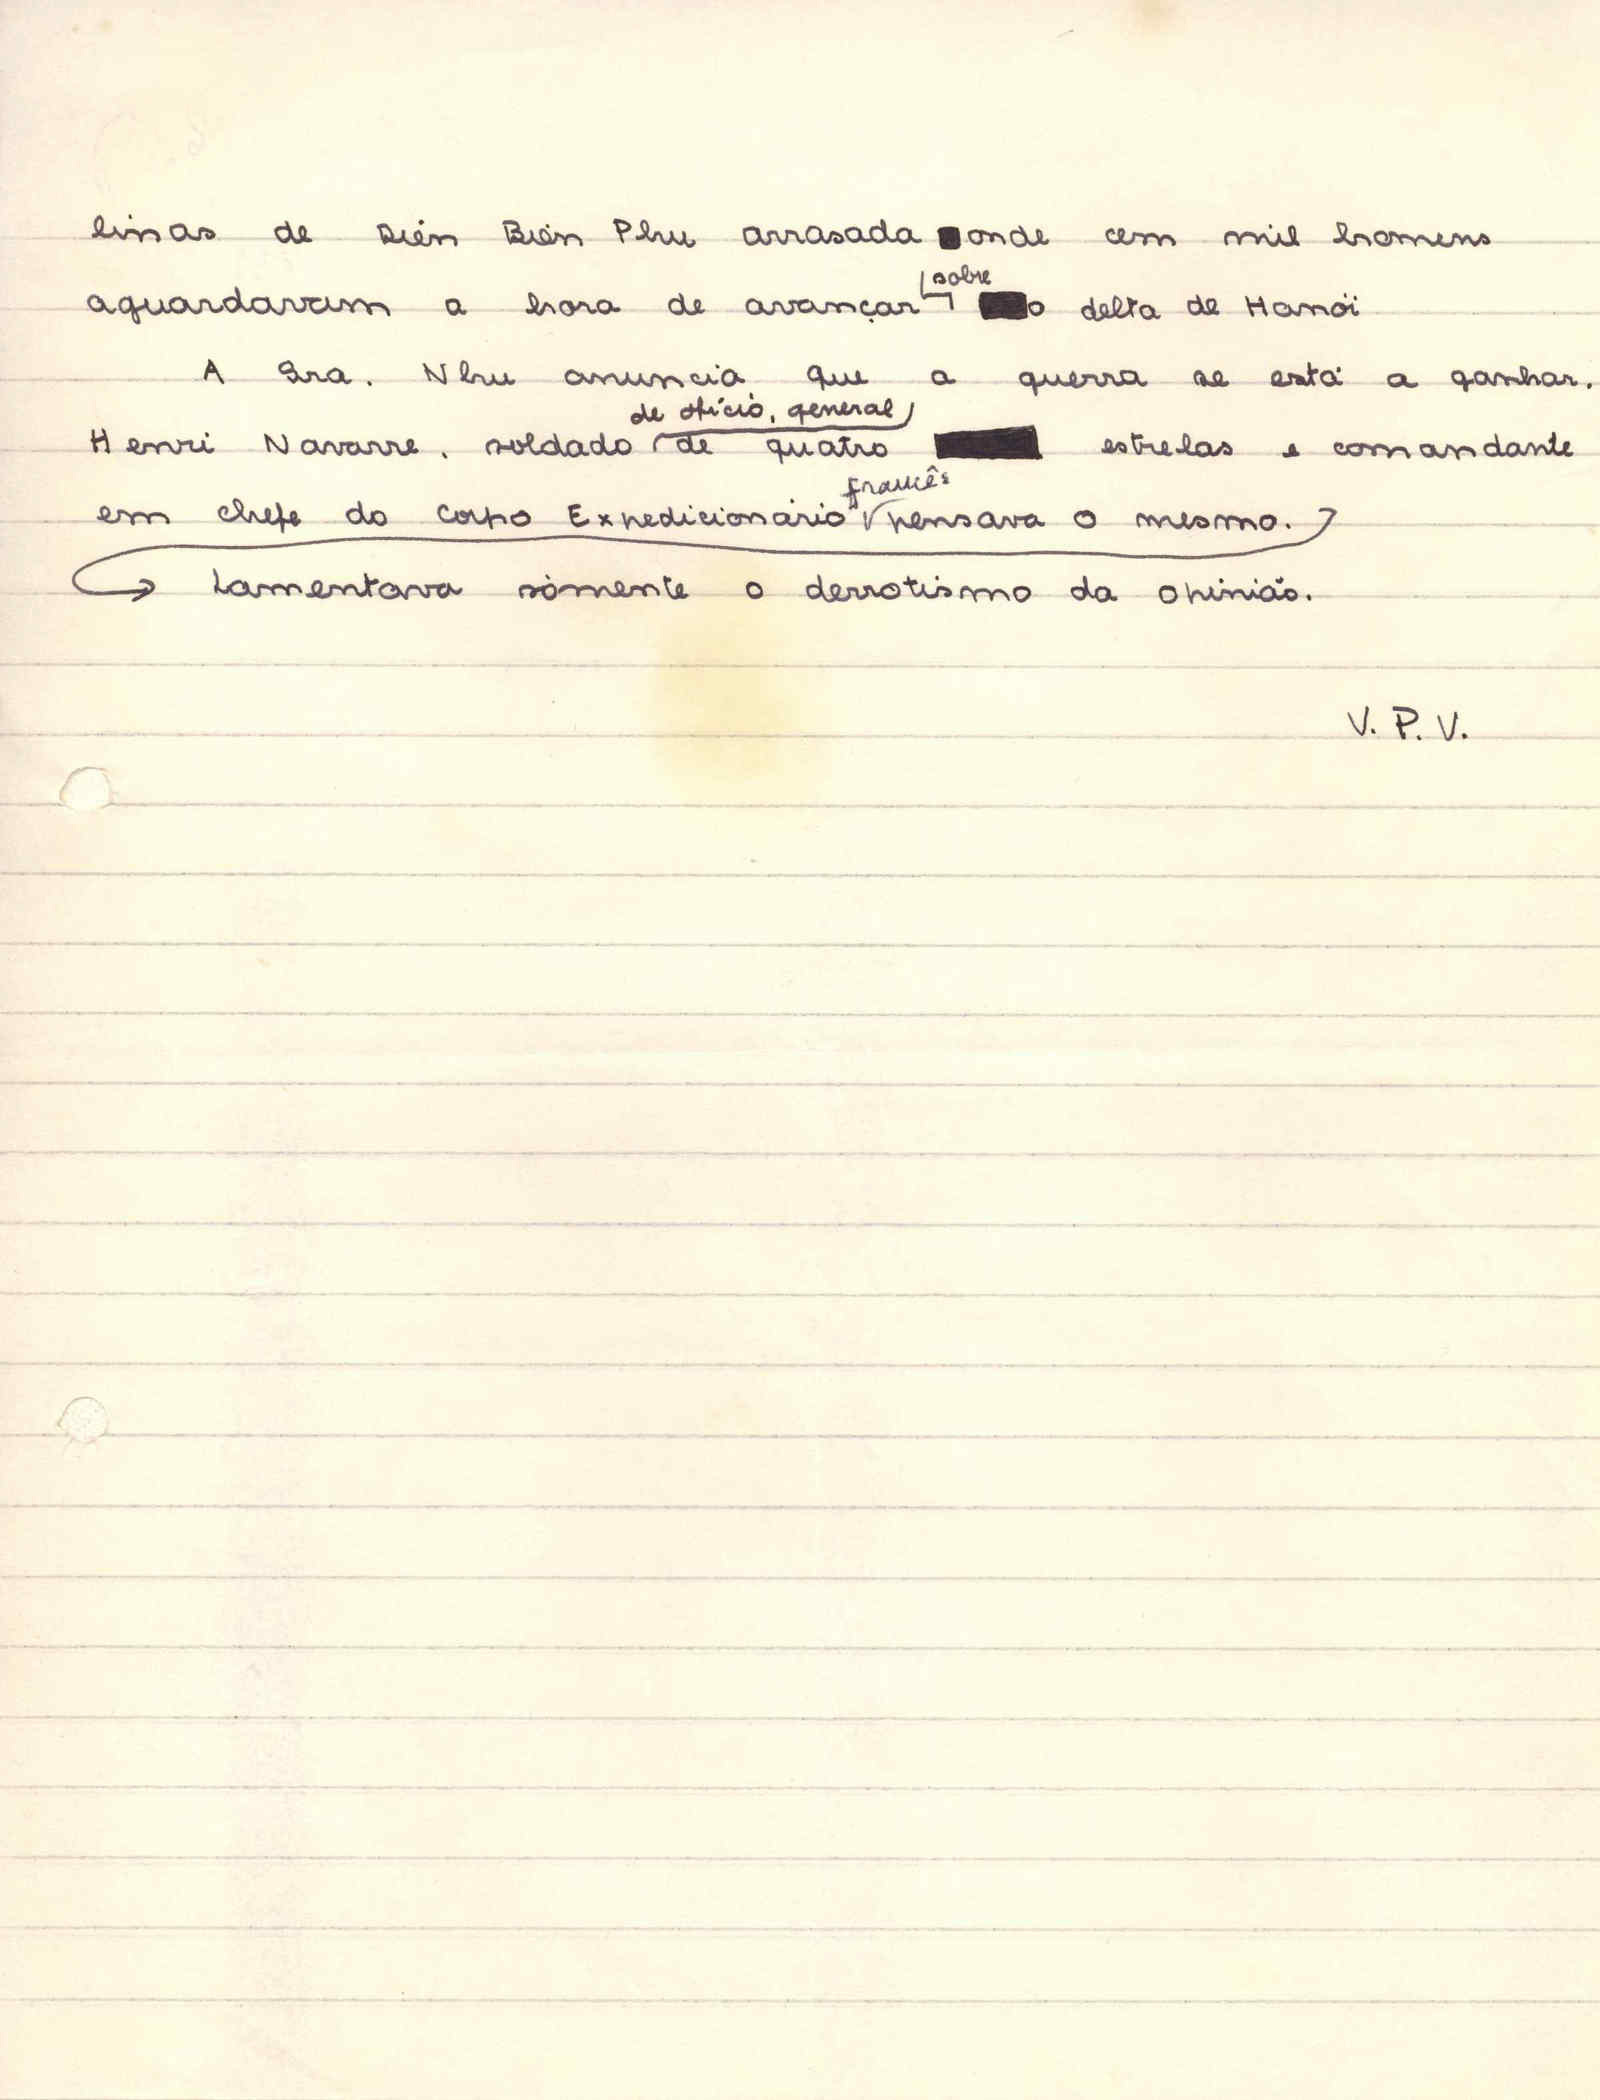 linas de Dién Bién Phu arrasada onde cem mil homens
aguardavam a hora de avançar sobre o delta de Hanói
A Sra. Nhu anuncia que a guerra se está a ganhar.
Henri Navarre, soldado de ofício, general de quatro estrelas e comandante
em chefe do Corpo Expedicionário francês pensava o mesmo.
Lamentava sòmente o derrotismo da opinião.
V. P. V.